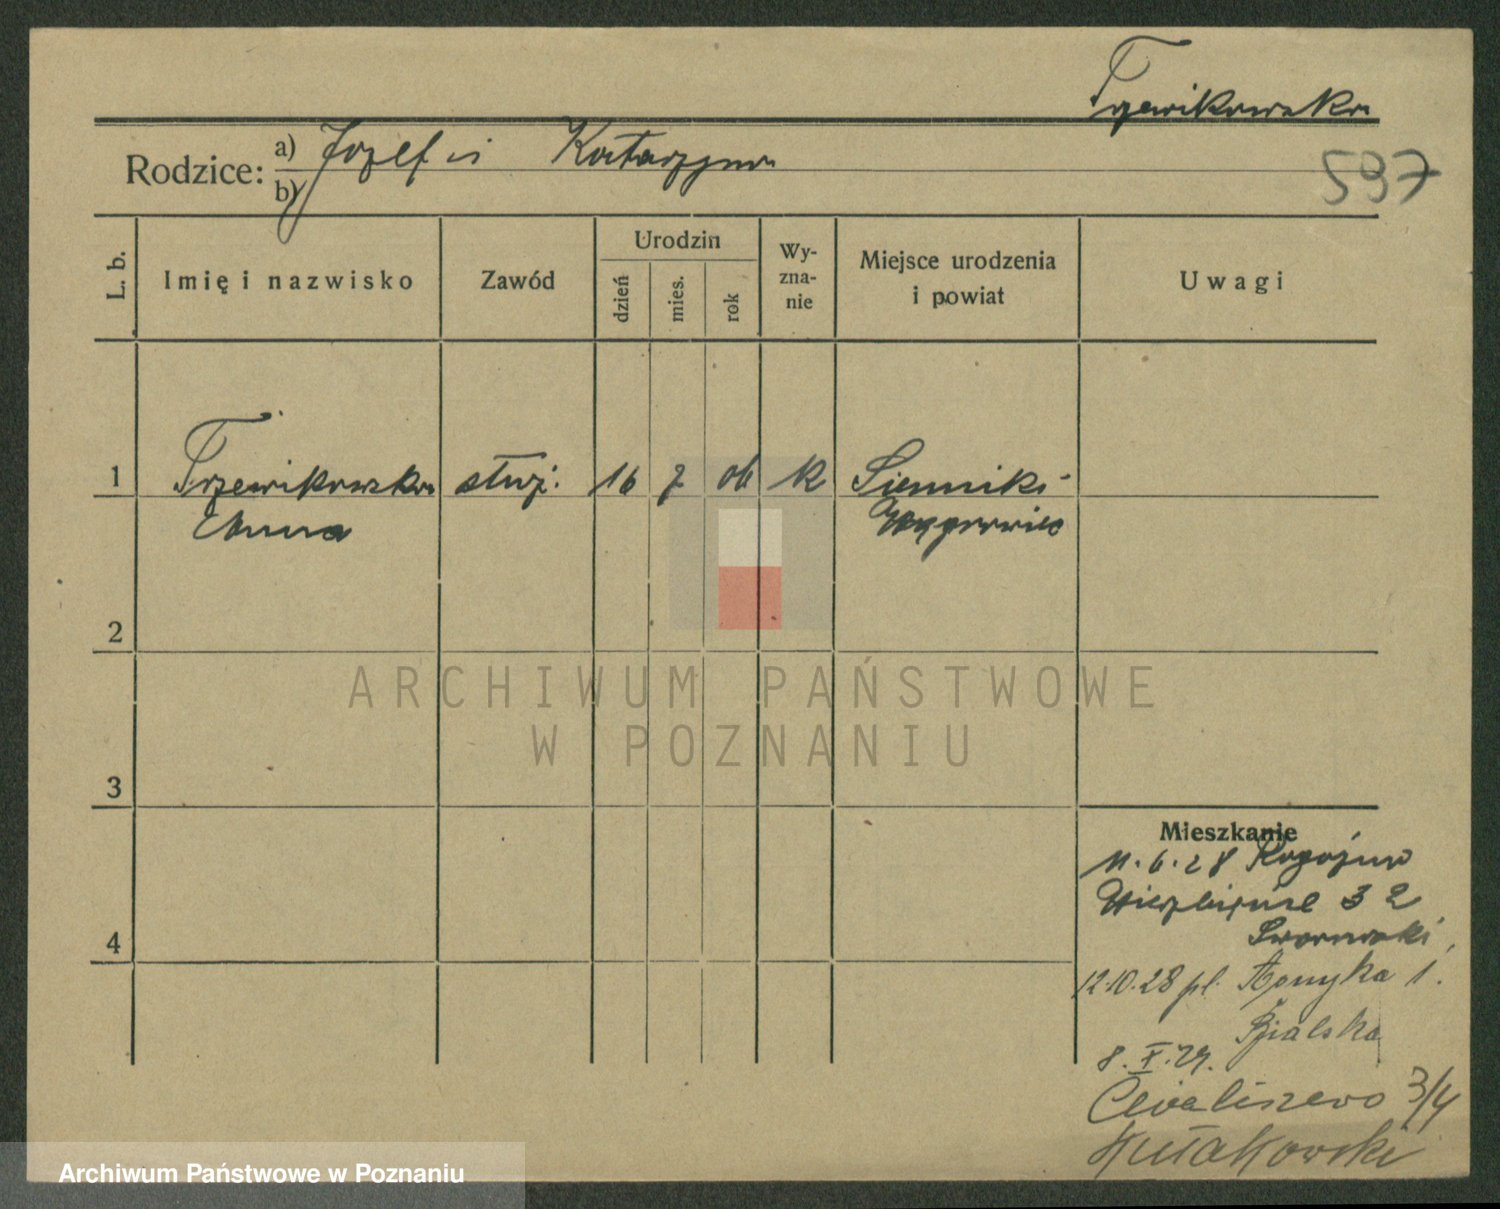 Trzewikowska
Rodzice: a) Józef i Katarzyna
b)
597
L. b.
Imię i nazwisko
Zawód
Urodzin
dzień
mies.
rok
Wy-
zna-
nie
Miejsce urodzenia
i powiat
Uwagi
1 Trzewikowska służ. 16 7 06 k Sienniki
Anna Wągrowiec
2
ARCHIWUM PAŃSTWOWE
W POZNANIU
3
Mieszkanie
11.6.28 Rogoźno
32
12.10.28 pl. Asnyka 1.
Bialska
8.X.29.
Chwaliszewo 3/4
Kułakowski
4
Archiwum Państwowe w Poznaniu